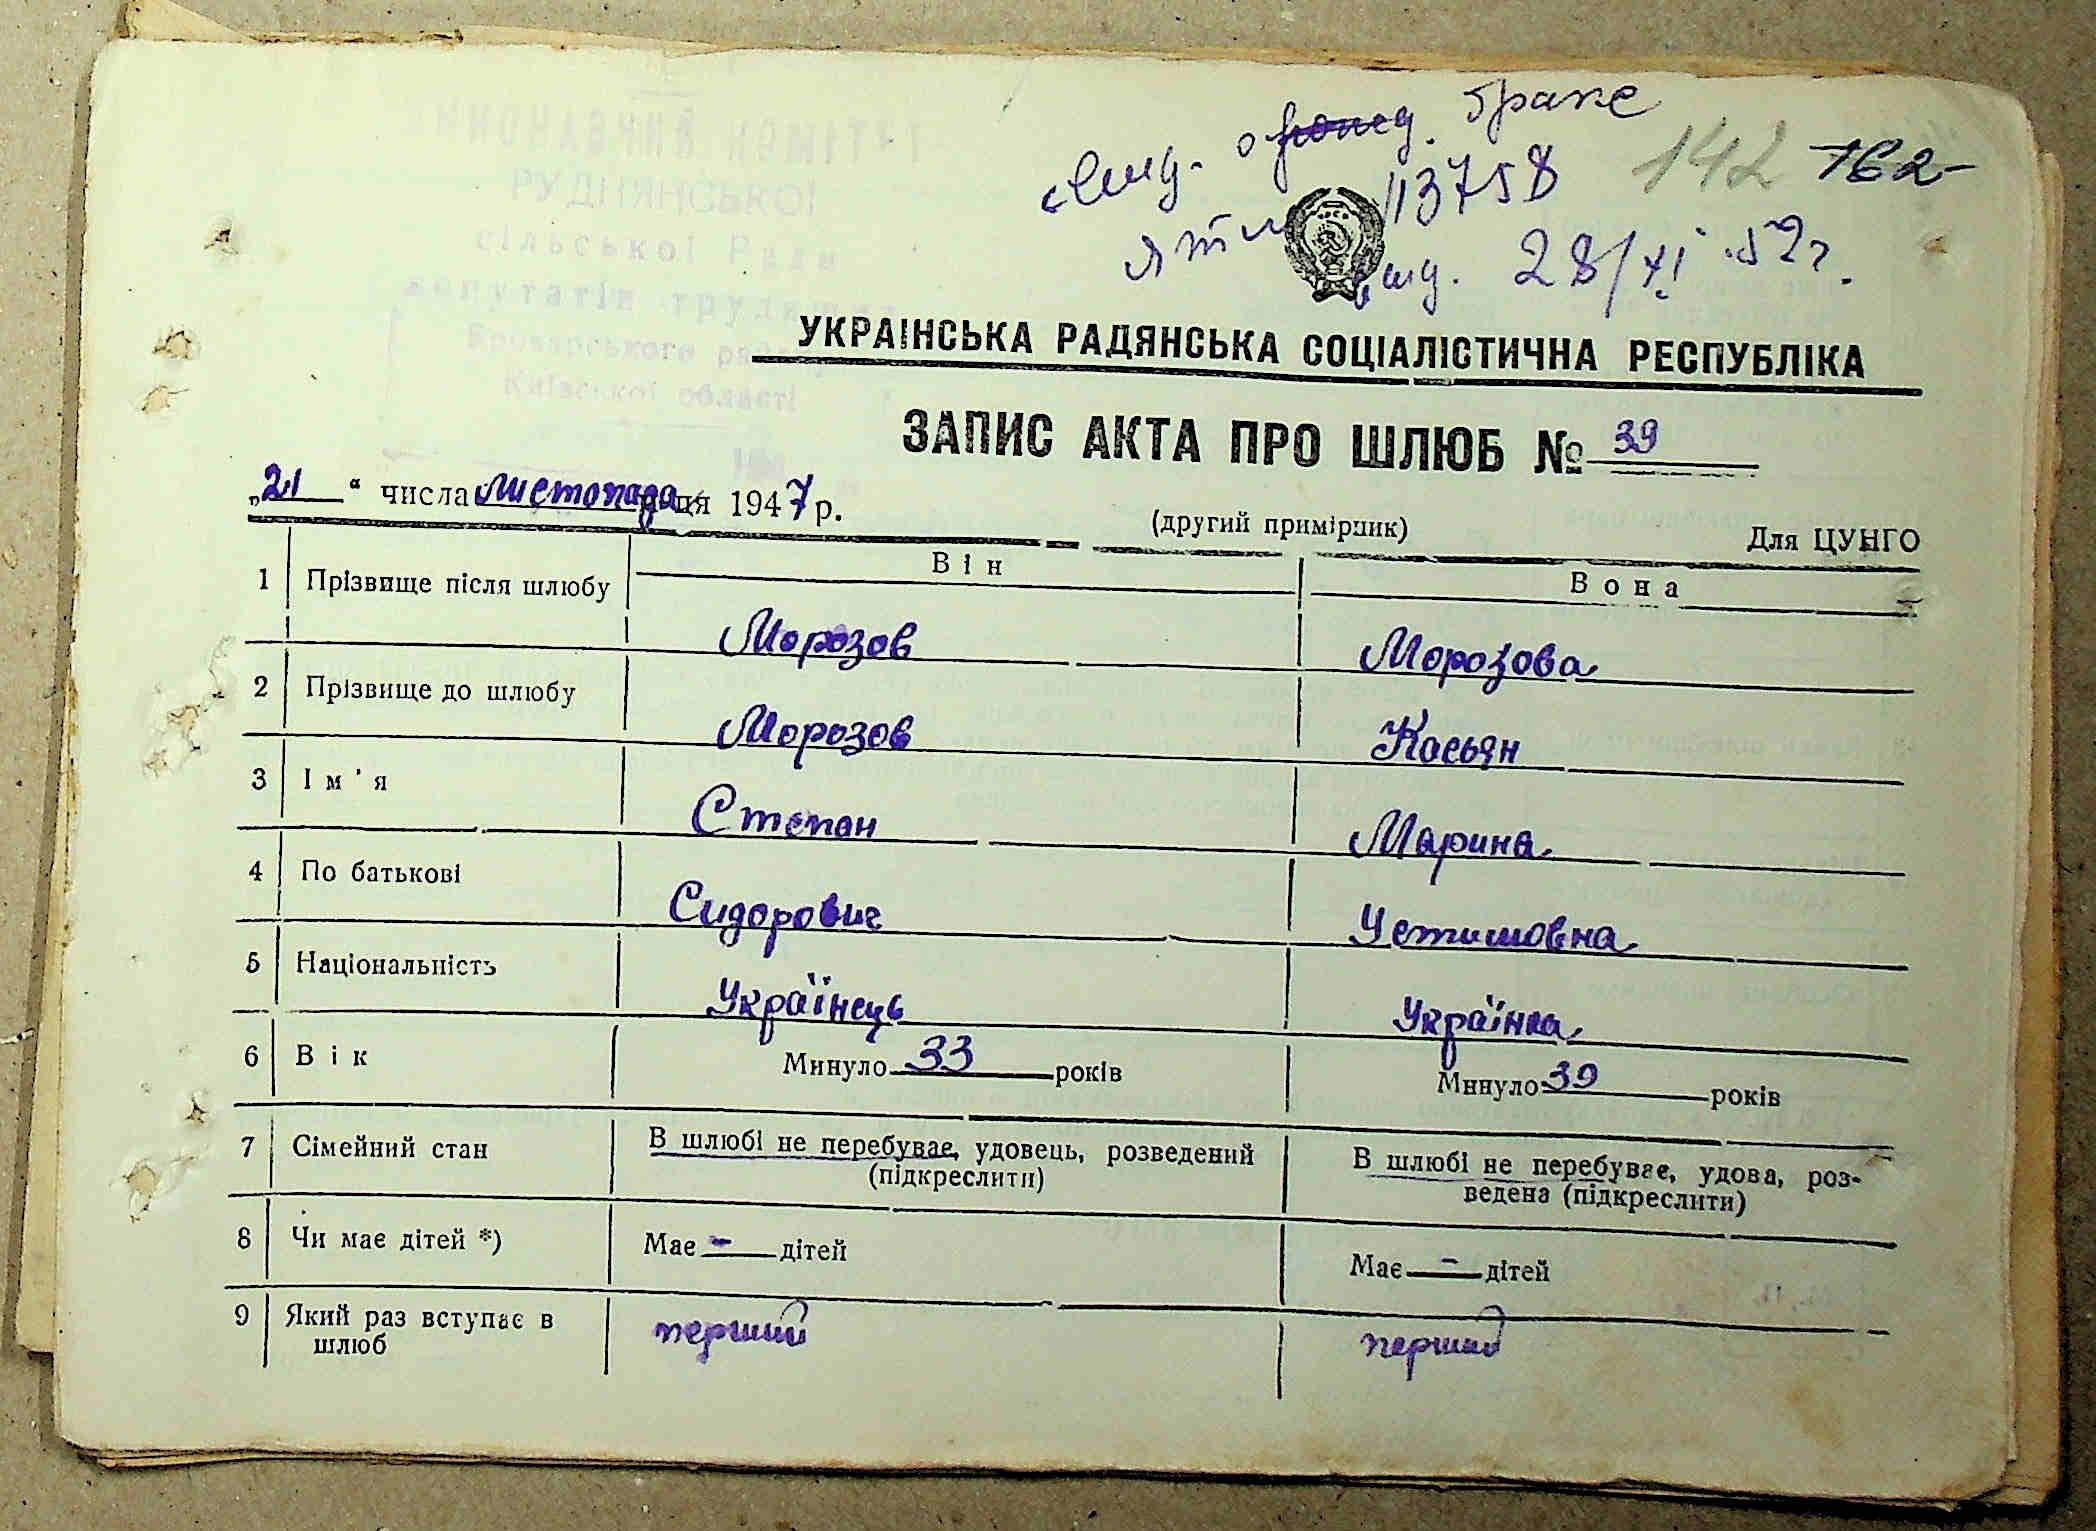 браке
113758
142 162
28/XI 52г.
УКРАЇНСЬКА РАДЯНСЬКА СОЦІАЛІСТИЧНА РЕСПУБЛІКА
ЗАПИС АКТА ПРО ШЛЮБ № 39
„21“ числа листопада місяця 1947 р.
(другий примірник)
Для ЦУНГО
Він Вона
1 Прізвище після шлюбу Морозов Морозова
2 Прізвище до шлюбу Морозов Касьян
3 Ім'я Степан Марина
4 По батькові Сидорович Устимовна
5 Національність Українець Українка
6 Вік Минуло 33 років Минуло 39 років
7 Сімейний стан В шлюбі не перебуває, удовець, розведений (підкреслити) В шлюбі не перебуває, удова, роз-
ведена (підкреслити)
8 Чи має дітей *) Має - дітей Має - дітей
9 Який раз вступає в шлюб перший перший
РУДНЯНСЬКОЇ
сільської Ради
депутатів трудящих
Броварського району
Київської області